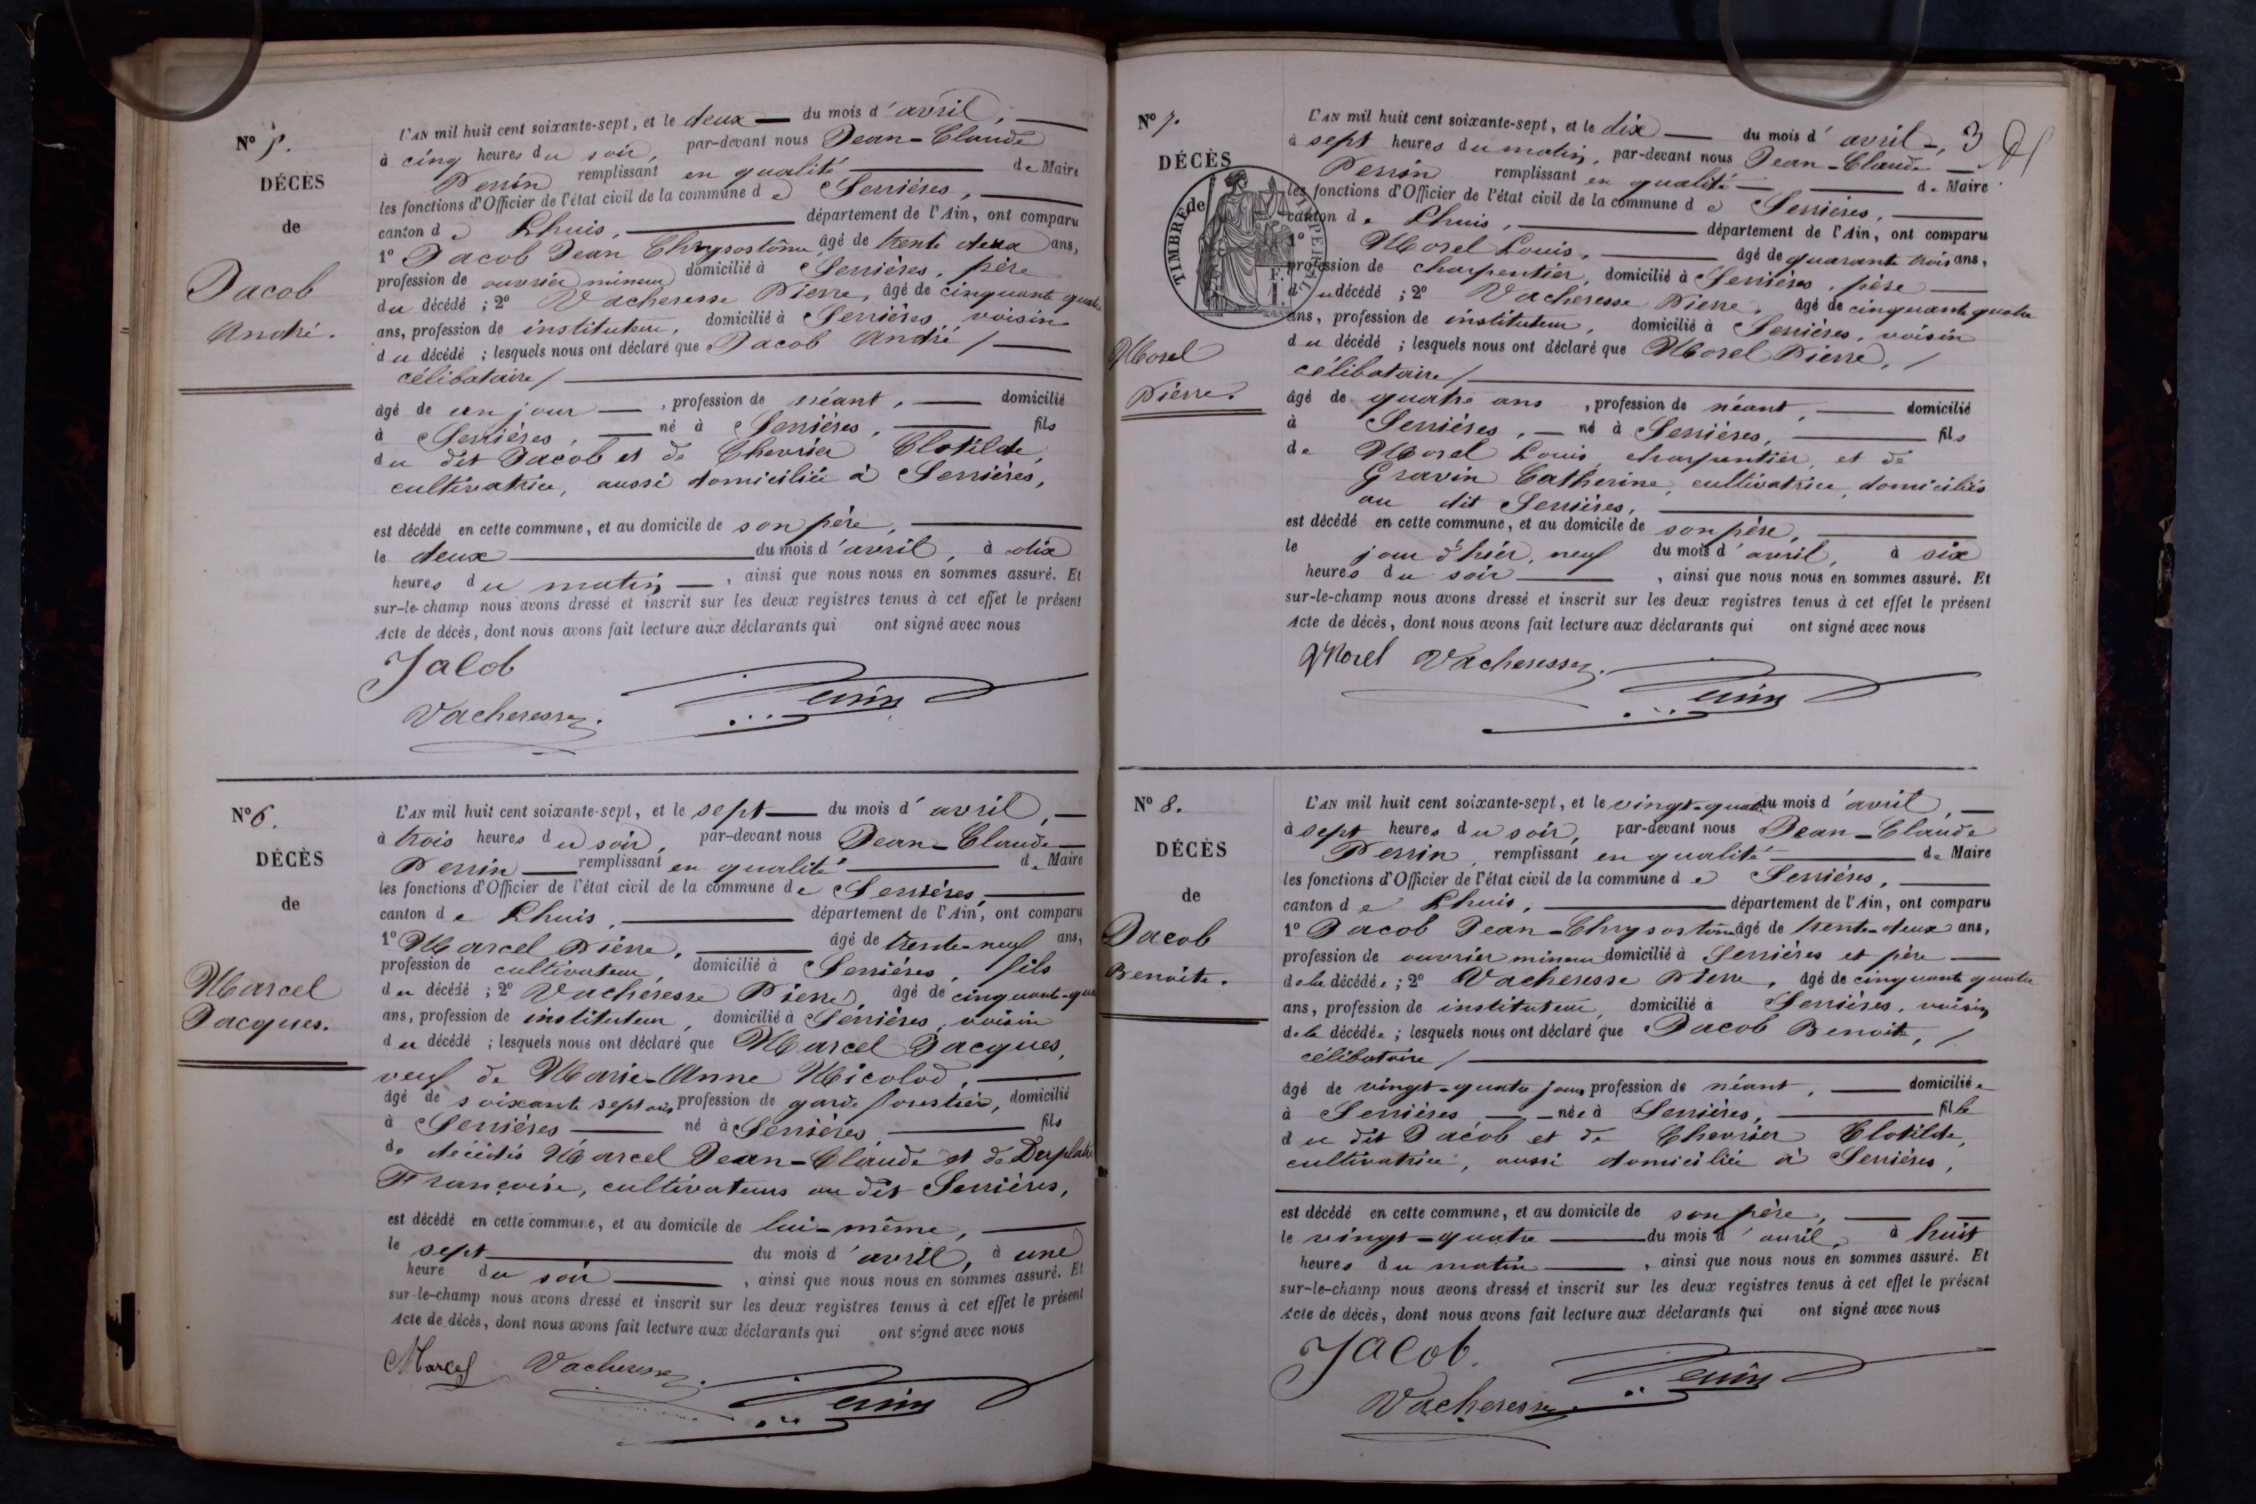 Nº 5.
DÉCÈS
de
Jacob
André.
L'AN mil huit cent soixante-sept, et le deux du mois d'avril,
à cinq heures du soir, par-devant nous Jean-Claude
Perrin remplissant en qualité de Maire
les fonctions d'Officier de l'état civil de la commune de Serrières,
canton de Lhuis, département de l'Ain, ont comparu
1º Jacob Jean Chrysostôme âgé de trente deux ans,
profession de ouvrier mineur domicilié à Serrières, père
du décédé ; 2º Vacheresse Pierre, âgé de cinquante quatre
ans, profession de instituteur, domicilié à Serrières voisin
du décédé ; lesquels nous ont déclaré que Jacob André /
célibataire /
âgé de un jour , profession de néant, domicilié
à Serrières, né à Serrières, fils
du dit Jacob et de Chevrier Clotilde,
cultivatrice, aussi domiciliée à Serrières,
est décédé en cette commune, et au domicile de son père,
le deux du mois d'avril, à dix
heures du matin , ainsi que nous nous en sommes assuré. Et
sur-le-champ nous avons dressé et inscrit sur les deux registres tenus à cet effet le présent
Acte de décès, dont nous avons fait lecture aux déclarants qui ont signé avec nous
Jacob
Vacheresse. Perrin
Nº 6.
DÉCÈS
de
Marcel
Jacques.
L'AN mil huit cent soixante-sept, et le sept du mois d'avril,
à trois heures du soir, par-devant nous Jean-Claude
Perrin remplissant en qualité de Maire
les fonctions d'Officier de l'état civil de la commune de Serrières,
canton de Lhuis, département de l'Ain, ont comparu
1º Marcel Pierre, âgé de trente-neuf ans,
profession de cultivateur, domicilié à Serrières, fils
du décédé ; 2º Vacheresse Pierre, âgé de cinquante-qua
ans, profession de instituteur, domicilié à Serrières, voisin
du décédé ; lesquels nous ont déclaré que Marcel Jacques,
veuf de Marie-Anne Nicolod,
âgé de soixante sept ans profession de garde forestier, domicilié
à Serrières né à Serrières fils
de décédés Marcel Jean-Claude et de Desplats
Françoise, cultivateurs au dit Serrières,
est décédé en cette commune, et au domicile de lui-même,
le sept du mois d'avril, à une
heure du soir , ainsi que nous nous en sommes assuré. Et
sur-le-champ nous avons dressé et inscrit sur les deux registres tenus à cet effet le présent
Acte de décès, dont nous avons fait lecture aux déclarants qui ont signé avec nous
Marcel Vacheresse. Perrin
Nº 7.
DÉCÈS
de
TIMBRE IMPERIAL
Morel
Pierre.
3
L'AN mil huit cent soixante-sept, et le dix du mois d'avril,
à sept heures du matin, par-devant nous Jean-Claude
Perrin remplissant en qualité de Maire
les fonctions d'Officier de l'état civil de la commune de Serrières,
canton de Lhuis, département de l'Ain, ont comparu
1º Morel Louis, âgé de quarante trois ans,
profession de charpentier, domicilié à Serrières, père
du décédé ; 2º Vacheresse Pierre, âgé de cinquante quatre
ans, profession de instituteur, domicilié à Serrières, voisin
du décédé ; lesquels nous ont déclaré que Morel Pierre, /
célibataire /
âgé de quatre ans , profession de néant, domicilié
à Serrières, né à Serrières, fils
de Morel Louis, charpentier, et de
Gravin Catherine, cultivatrice, domiciliés
au dit Serrières,
est décédé en cette commune, et au domicile de son père,
le jour d'hier, neuf du mois d'avril, à six
heures du soir , ainsi que nous nous en sommes assuré. Et
sur-le-champ nous avons dressé et inscrit sur les deux registres tenus à cet effet le présent
Acte de décès, dont nous avons fait lecture aux déclarants qui ont signé avec nous
Morel Vacheresse. Perrin
Nº 8.
DÉCÈS
de
Jacob
Benoîte.
L'AN mil huit cent soixante-sept, et le vingt-quatre du mois d'avril,
à sept heures du soir, par-devant nous Jean-Claude
Perrin, remplissant en qualité de Maire
les fonctions d'Officier de l'état civil de la commune de Serrières,
canton de Lhuis, département de l'Ain, ont comparu
1º Jacob Jean-Chrysostôme âgé de trente-deux ans,
profession de ouvrier mineur domicilié à Serrières et père
de la décédée ; 2º Vacheresse Pierre, âgé de cinquante quatre
ans, profession de instituteur, domicilié à Serrières, voisin
de la décédée ; lesquels nous ont déclaré que Jacob Benoite, /
célibataire /
âgé de vingt-quatre jours profession de néant, domiciliée
à Serrières née à Serrières, fille
du dit Jacob et de Chevrier Clotilde,
cultivatrice, aussi domiciliée à Serrières,
est décédé en cette commune, et au domicile de son père,
le vingt-quatre du mois d'avril, à huit
heures du matin , ainsi que nous nous en sommes assuré. Et
sur-le-champ nous avons dressé et inscrit sur les deux registres tenus à cet effet le présent
Acte de décès, dont nous avons fait lecture aux déclarants qui ont signé avec nous
Jacob.
Vacheresse Perrin